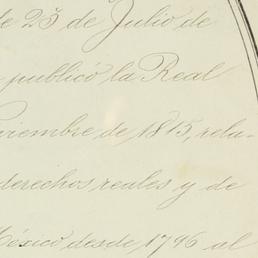 de 23 de Julio de
publicó la Real
viembre de 1815, rela-
derechos reales y de
México desde 1796 al